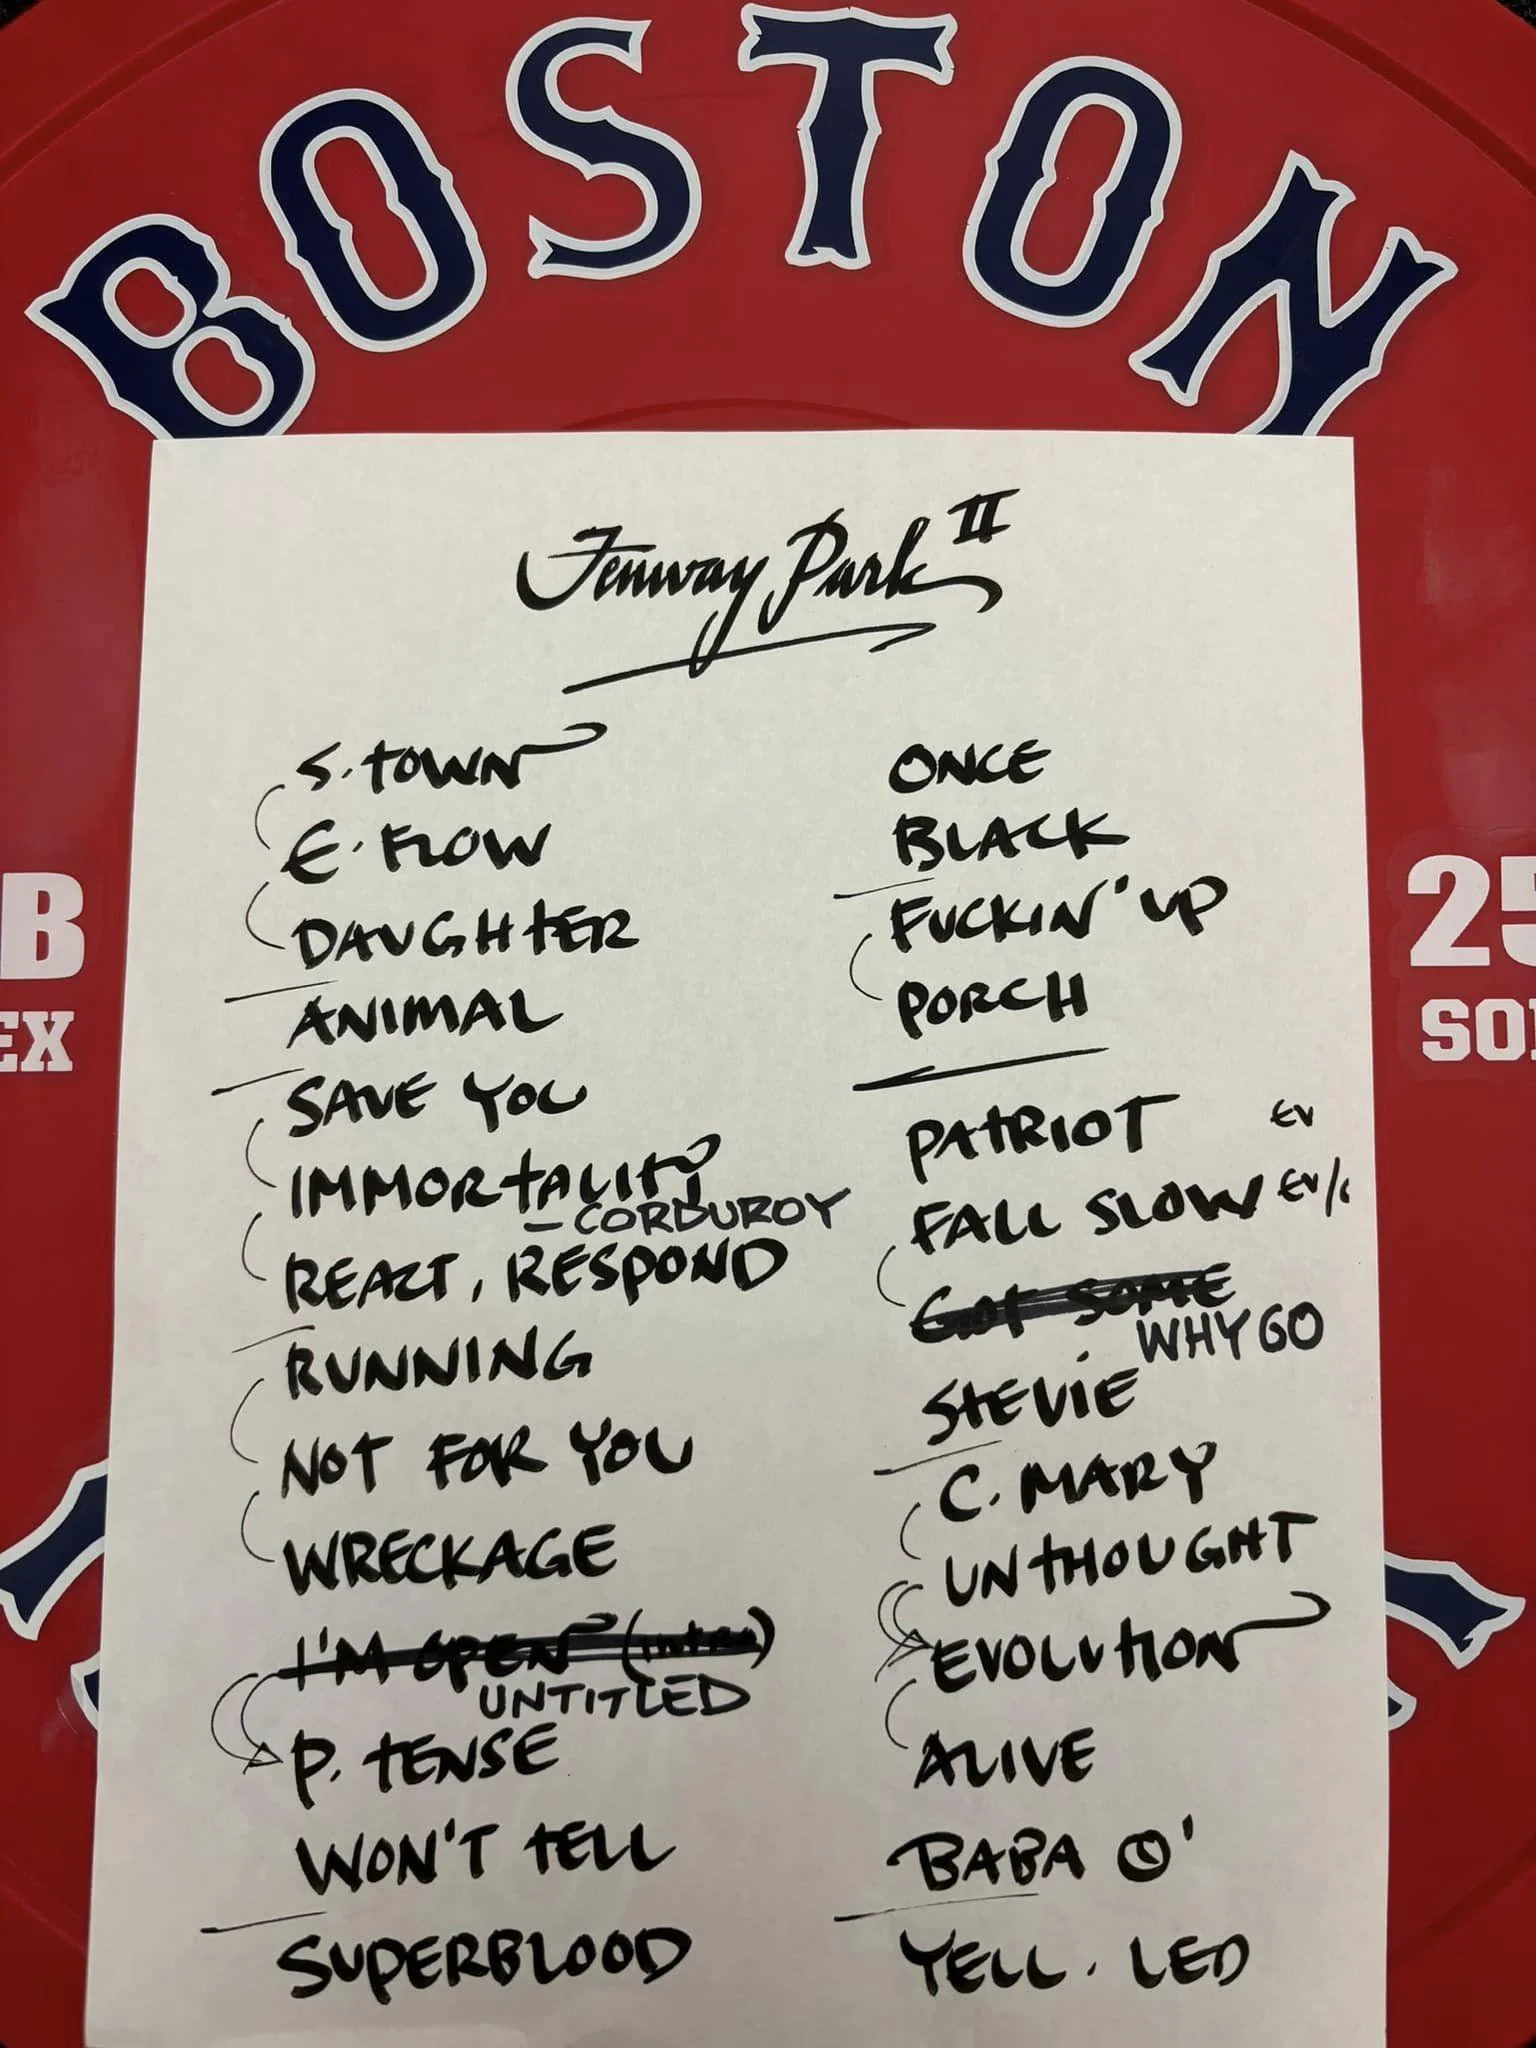 BOSTON
B
EX
25
SO
Fenway Park II
S. TOWN
E. FLOW
DAUGHTER
ANIMAL
SAVE YOU
IMMORTALITY
- CORDUROY
REACT, RESPOND
RUNNING
NOT FOR YOU
WRECKAGE
I'M OPEN (intro)
UNTITLED
P. TENSE
WON'T TELL
SUPERBLOOD
ONCE
BLACK
FUCKIN' UP
PORCH
PATRIOT EV
FALL SLOW EV/
GOT SOME
WHY GO
STEVIE
C. MARY
UNTHOUGHT
EVOLUTION
ALIVE
BABA O'
YELL. LED